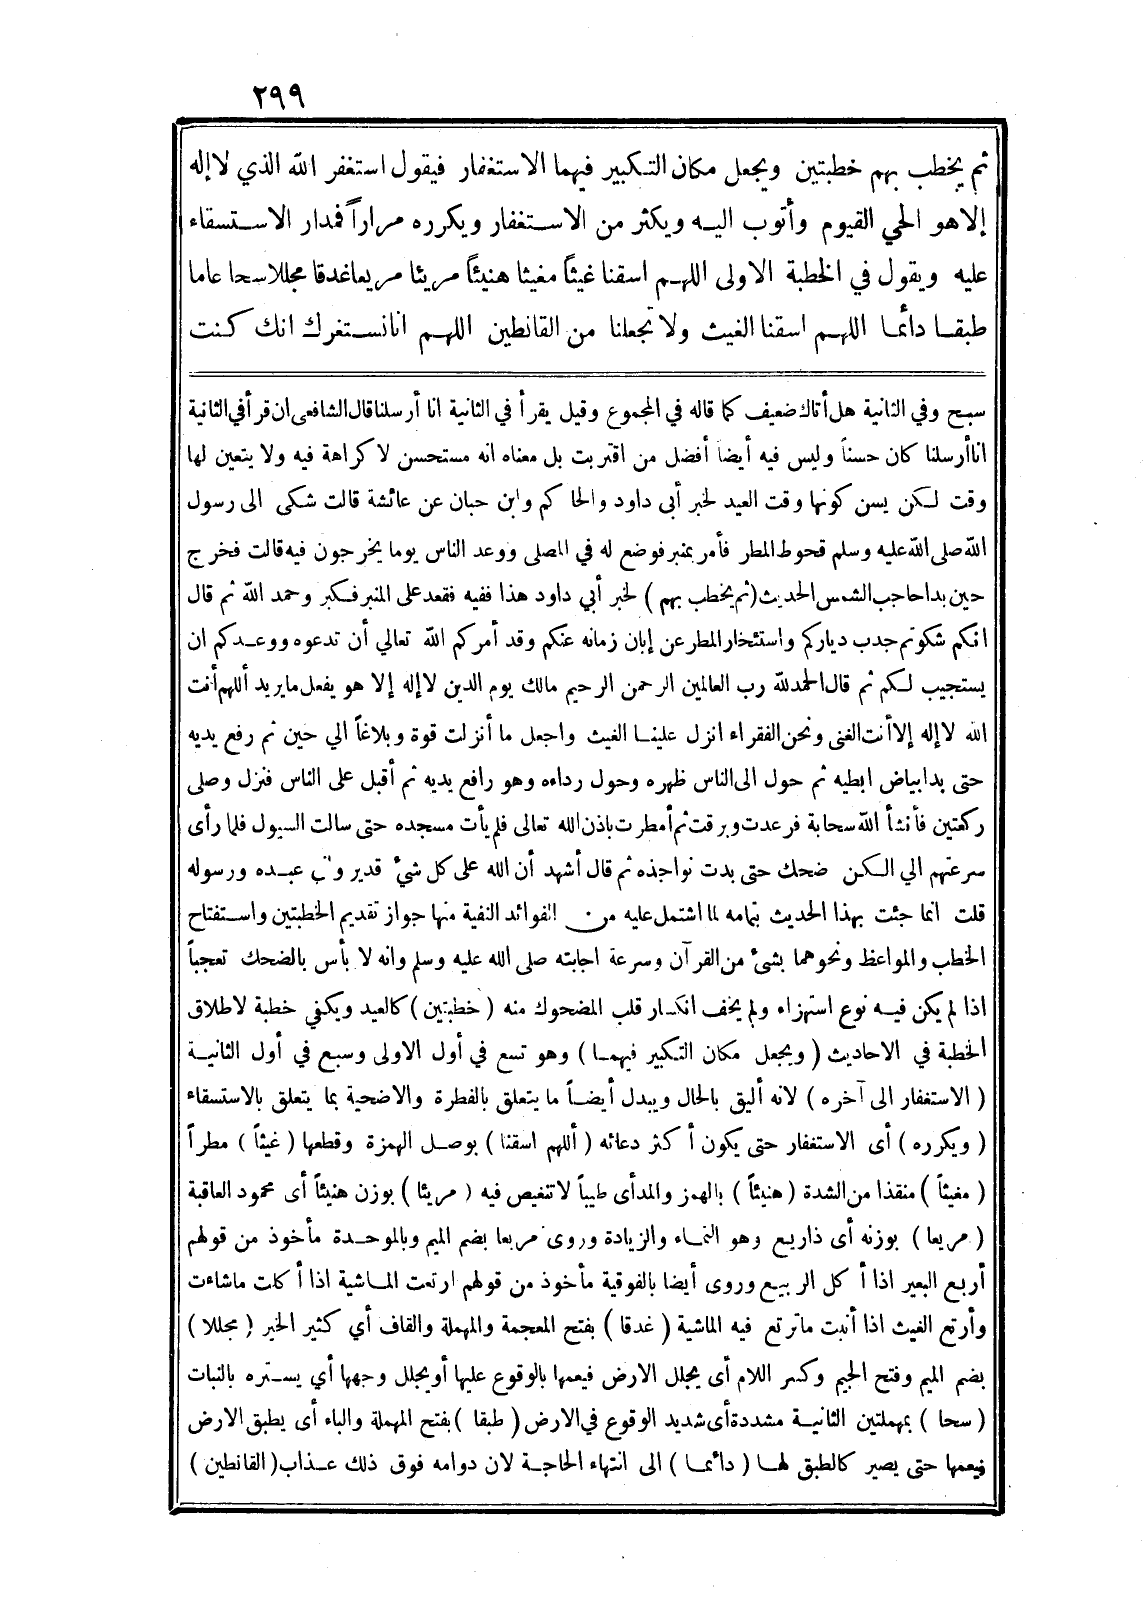 ٢٩٩
ثم يخطب بهم خطبتين ويجعل مكان التكبير فيهما الاستغفار فيقول استغفر الله الذي لا إله
إلا هو الحي القيوم وأتوب اليه ويكثر من الاستغفار ويكرره مراراً فمدار الاستسقاء
عليه ويقول في الخطبة الاولى اللهم اسقنا غيثاً مغيثا هنيئاً مريئا مريعا غدقا مجللا سحا عاما
طبقا دائما اللهم اسقنا الغيث ولا تجعلنا من القانطين اللهم انا نستغفرك انك كنت
سبح وفي الثانية هل أتاك ضعيف كما قاله في المجموع وقيل يقرأ في الثانية انا أرسلنا قال الشافعى ان قرأ في الثانية
انا أرسلنا كان حسناً وليس فيه أيضا أفضل من اقتربت بل معناه انه مستحسن لا كراهة فيه ولا يتعين لها
وقت لكن يسن كونها وقت العيد لخبر أبي داود والحاكم وابن حبان عن عائشة قالت شكى الى رسول
الله صلى الله عليه وسلم قحوط المطر فأمر بمنبر فوضع له في المصلى ووعد الناس يوما يخرجون فيه قالت فخرج
حين بدا حاجب الشمس الحديث (ثم يخطب بهم) لخبر أبي داود هذا ففيه فقعد على المنبر فكبر وحمد الله ثم قال
انكم شكوتم جدب دياركم واستئخار المطر عن إبان زمانه عنكم وقد أمركم الله تعالي أن تدعوه ووعدكم ان
يستجيب لكم ثم قال الحمد لله رب العالمين الرحمن الرحيم مالك يوم الدين لا إله إلا هو يفعل ما يريد أللهم أنت
الله لا إله إلا أنت الغنى ونحن الفقراء انزل علينا الغيث واجعل ما أنزلت قوة وبلاغاً الي حين ثم رفع يديه
حتى بدا بياض ابطيه ثم حول الى الناس ظهره وحول رداءه وهو رافع يديه ثم أقبل على الناس فنزل وصلى
ركعتين فأنشأ الله سحابة فرعدت وبرقت ثم أمطرت باذن الله تعالى فلم يأت مسجده حتى سالت السيول فلما رأى
سرعتهم الي الكن ضحك حتى بدت نواجذه ثم قال أشهد أن الله على كل شيء قدير عبده ورسوله
قلت انما جئت بهذا الحديث بتمامه لما اشتمل عليه من الفوائد النفية منها جواز تقديم الخطبتين واستفتاح
الخطب والمواعظ ونحوهما بشئ من القرآن وسرعة اجابته صلى الله عليه وسلم وانه لا بأس بالضحك تعجباً
اذا لم يكن فيه نوع استهزاء ولم يخف انكسار قلب المضحوك منه (خطبتين) كالعيد ويكفي خطبة لاطلاق
الخطبة في الاحاديث (ويجعل مكان التكبير فيهما) وهو تسع في أول الاولى وسبع في أول الثانية
(الاستغفار الى آخره) لانه أليق بالحال ويبدل أيضاً ما يتعلق بالفطرة والاضحية بما يتعلق بالاستسقاء
(ويكرره) أى الاستغفار حتى يكون أكثر دعائه (أللهم اسقنا) بوصل الهمزة وقطعها (غيثاً) مطراً
(مغيثاً) منقذا من الشدة (هنيئاً) بالهمز والمدأى طيباً لا تنغيص فيه (مريئا) بوزن هنيئاً أى محمود العاقبة
(مريعا) بوزنه أى ذاريع وهو النماء والزيادة وروى مربعا بضم الميم وبالموحدة مأخوذ من قولهم
أربع البعير اذا أكل الربيع وروى أيضا بالفوقية مأخوذ من قولهم ارتعت الماشية اذا أكلت ماشاءت
وأرتع الغيث اذا أنبت ماترتع فيه الماشية (غدقا) بفتح المعجمة والمهملة والقاف أي كثير الخير (مجللا)
بضم الميم وفتح الجيم وكسر اللام أى يجلل الارض فيعمها بالوقوع عليها أو يجلل وجهها أي يستره بالنبات
(سحا) بمهملتين الثانية مشددة أى شديد الوقوع في الارض (طبقا) بفتح المهملة والباء أى يطبق الارض
فيعمها حتى يصير كالطبق لها (دائما) الى انتهاء الحاجة لان دوامه فوق ذلك عذاب (القانطين)